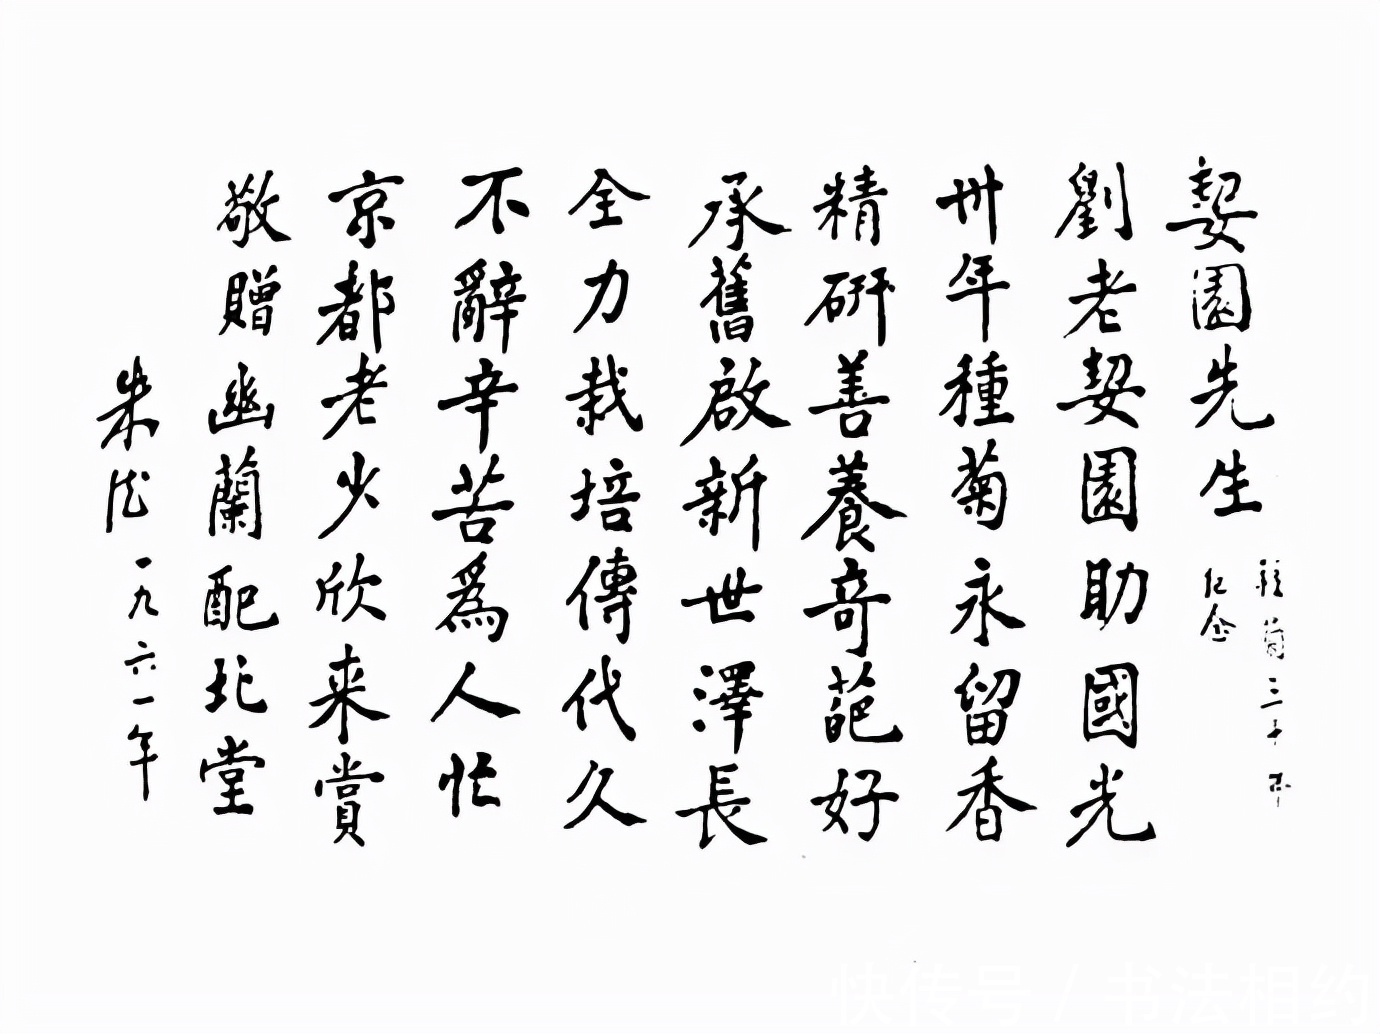 契園先生
種菊三十年
纪念
劉老契園助國光
卅年種菊永留香
精研善養奇葩好
承舊啟新世澤長
全力栽培傳代久
不辭辛苦為人忙
京都老少欣来賞
敬贈幽蘭配北堂
朱德
一九六一年
快传号 / 书法相约